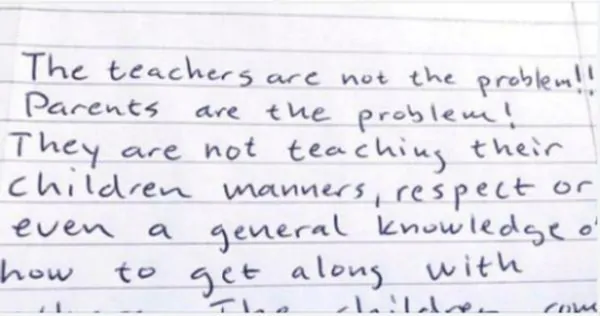 The teachers are not the problem!!
Parents are the problem!
They are not teaching their
children manners, respect or
even a general knowledge o
how to get along with
The children com